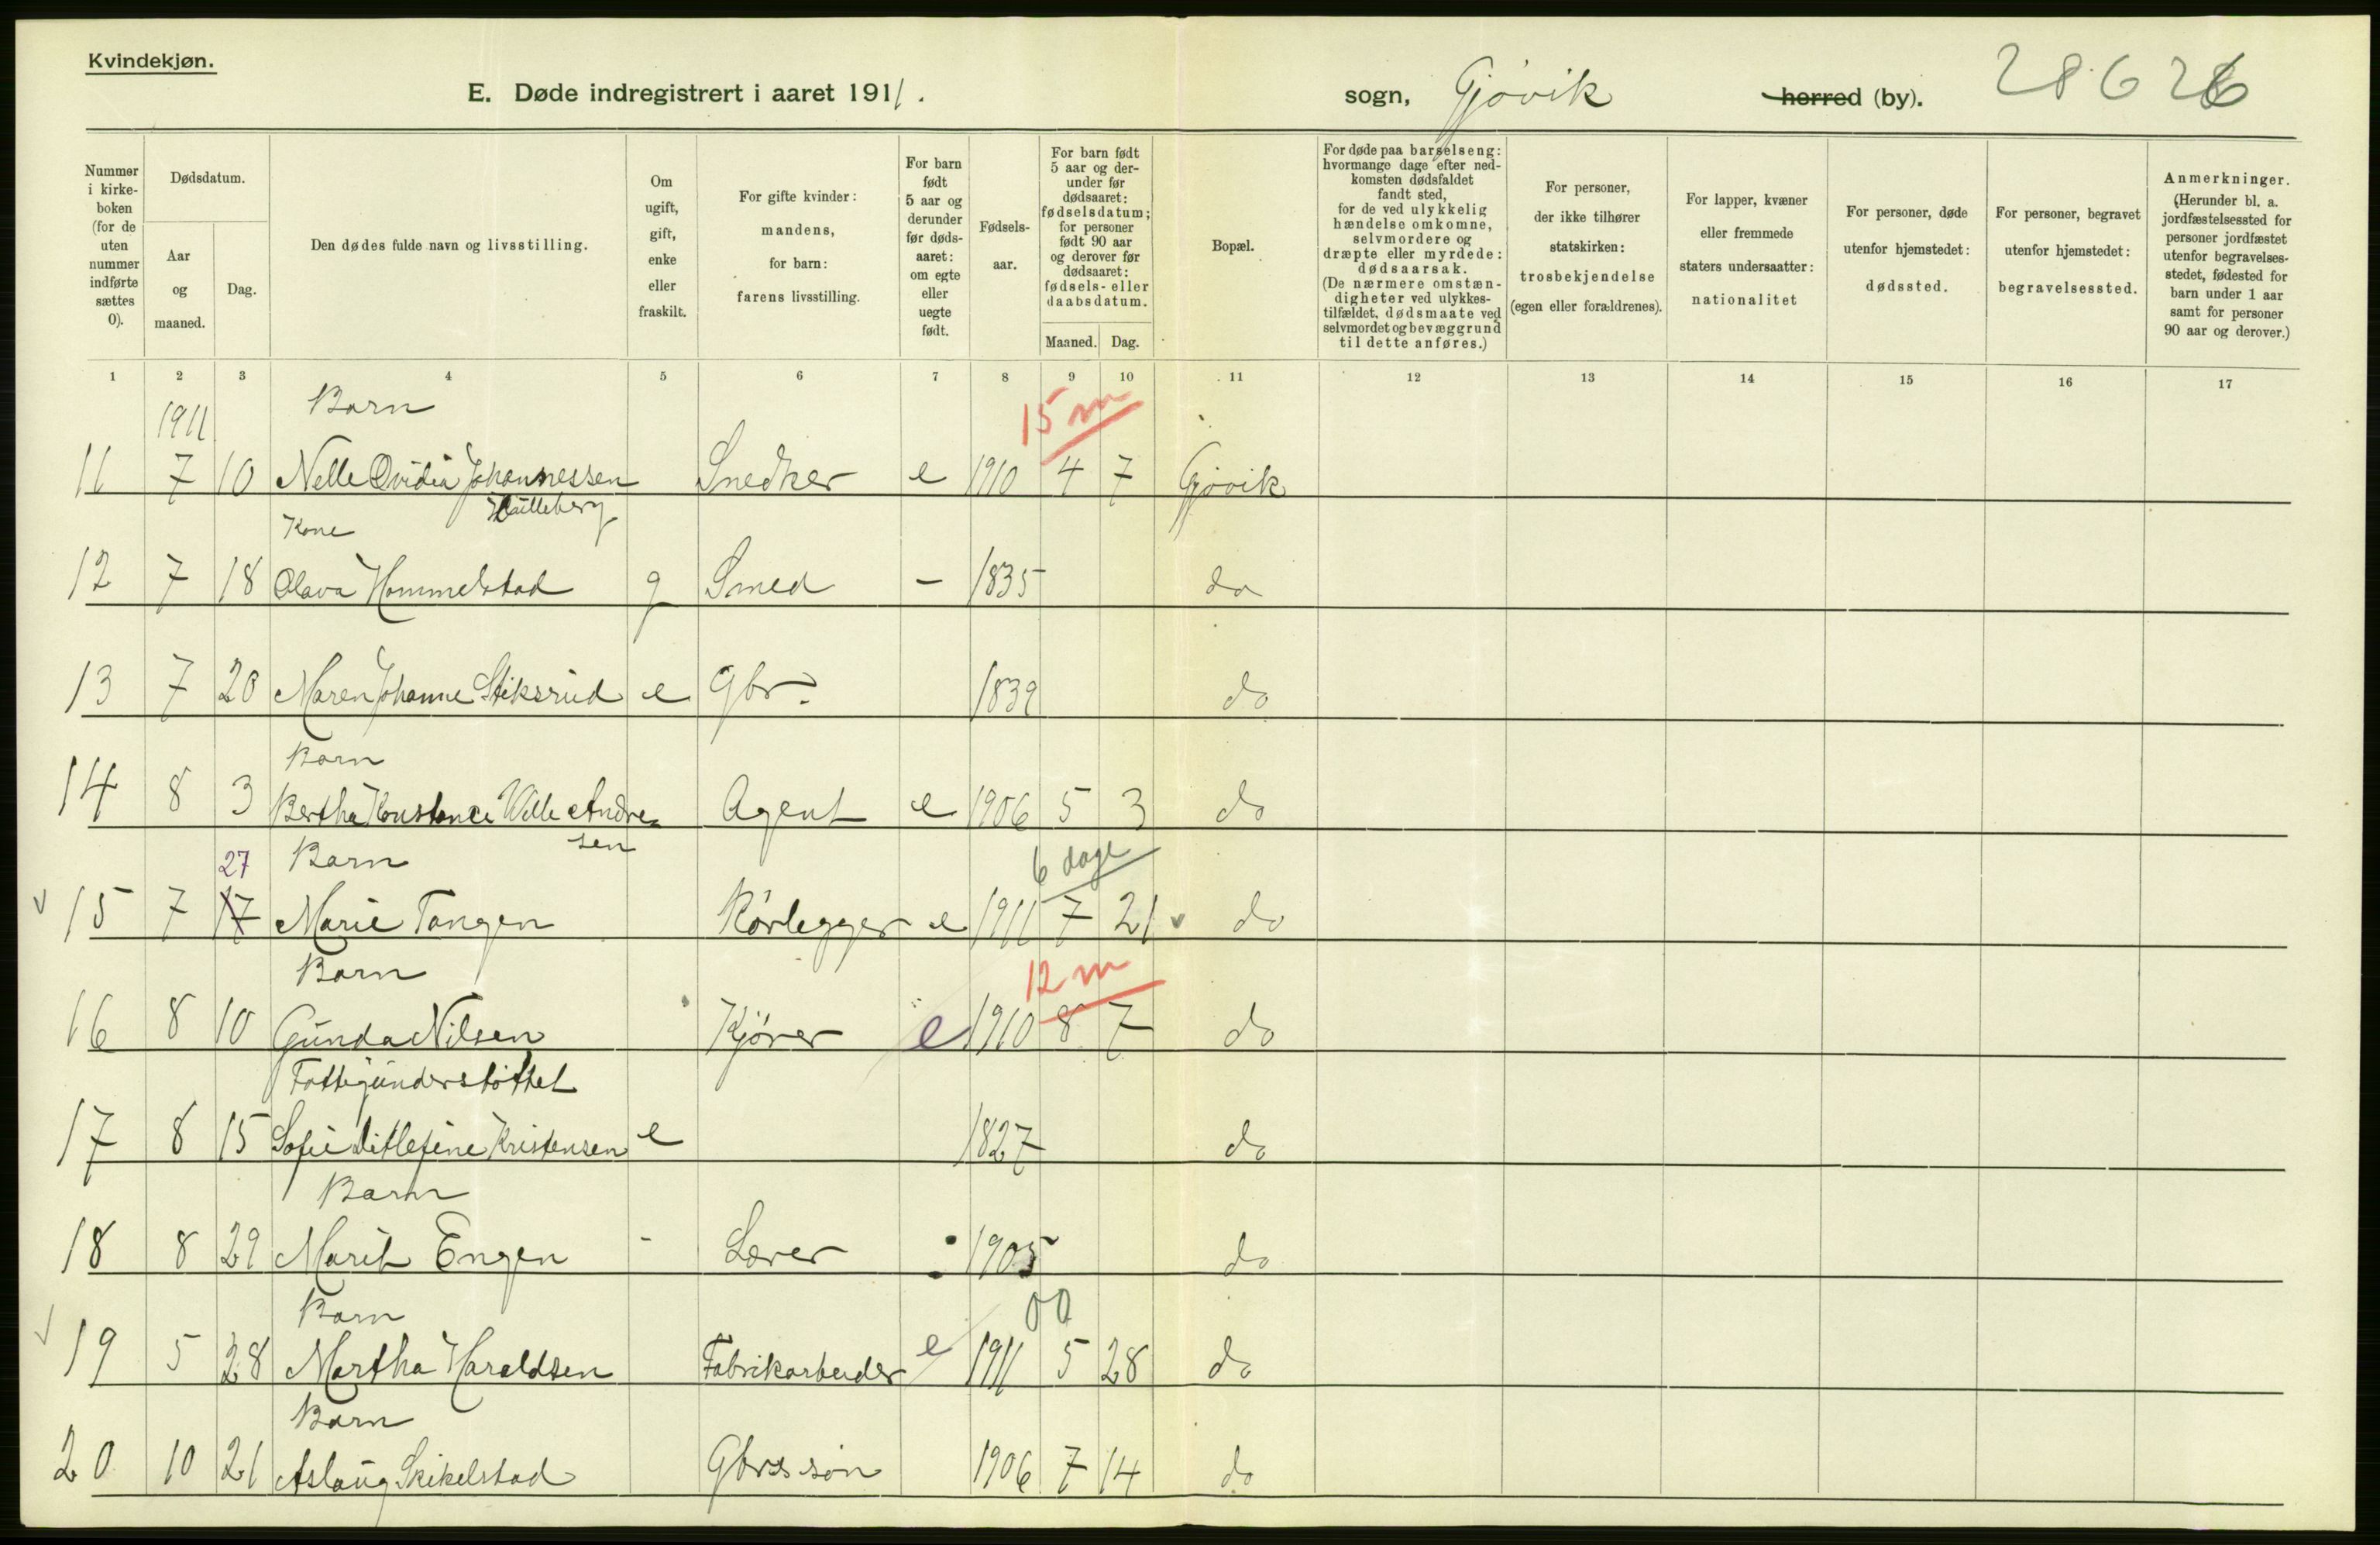 Kvindekjøn.
E. Døde indregistrert i aaret 1911.
sogn, Gjøvik herred (by). 28626
Nummer i kirke-boken (for de uten nummer indførte sættes 0).
Dødsdatum.
Aar og maaned.
Dag.
Den dødes fulde navn og livsstilling.
Om ugift, gift, enke eller fraskilt.
For gifte kvinder: mandens, for barn: farens livsstilling.
For barn født 5 aar og derunder før døds-aaret: om egte eller uegte født.
Fødsels-aar.
For barn født 5 aar og der-under før dødsaaret: fødselsdatum; for personer født 90 aar og derover før dødsaaret: fødsels- eller daabsdatum.
Maaned. Dag.
Bopæl.
For døde paa barselseng: hvormange dage efter ned-komsten dødsfaldet fandt sted, for de ved ulykkelig hændelse omkomne, selvmordere og dræpte eller myrdede: dødsaarsak. (De nærmere omstæn-digheter ved ulykkes-tilfældet, dødsmaate ved selvmordet og bevæggrund til dette anføres.)
For personer, der ikke tilhører statskirken: trosbekjendelse (egen eller forældrenes).
For lapper, kvæner eller fremmede staters undersaatter: nationalitet
For personer, døde utenfor hjemstedet: dødssted.
For personer, begravet utenfor hjemstedet: begravelsessted.
Anmerkninger. (Herunder bl. a. jordfæstelsessted for personer jordfæstet utenfor begravelses-stedet, fødested for barn under 1 aar samt for personer 90 aar og derover.)
1 2 3 4 5 6 7 8 9 10 11 12 13 14 15 16 17
1911 Barn 15 m
11 7 10 Nelle Ovidia Johannessen Snedker e 1910 4 7 Gjøvik
Kone
12 7 18 Olava Hommelstad g Smed - 1835 do
13 7 20 Maren Johanne Stiksrud e Gbr. 1839 do
Barn
14 8 3 Bertha Konstance Wille Andre- Agent e 1906 5 3 do
sen
27 Barn 6 dage
15 7 17 Marie Tangen Rørlegger e 1911 7 21 do
Barn 12 m
16 8 10 Gunda Nilsen Kjører e 1910 8 7 do
Fattigunderstøttet
17 8 15 Sofie Ditlefine Kristensen e 1827 do
Barn
18 8 29 Marit Engen - Lærer 1905 do
Barn 00
19 5 28 Martha Haraldsen Fabrikarbeider e 1911 5 28 do
Barn
20 10 21 Aslaug Skikelstad Gbrs søn 1906 7 14 do